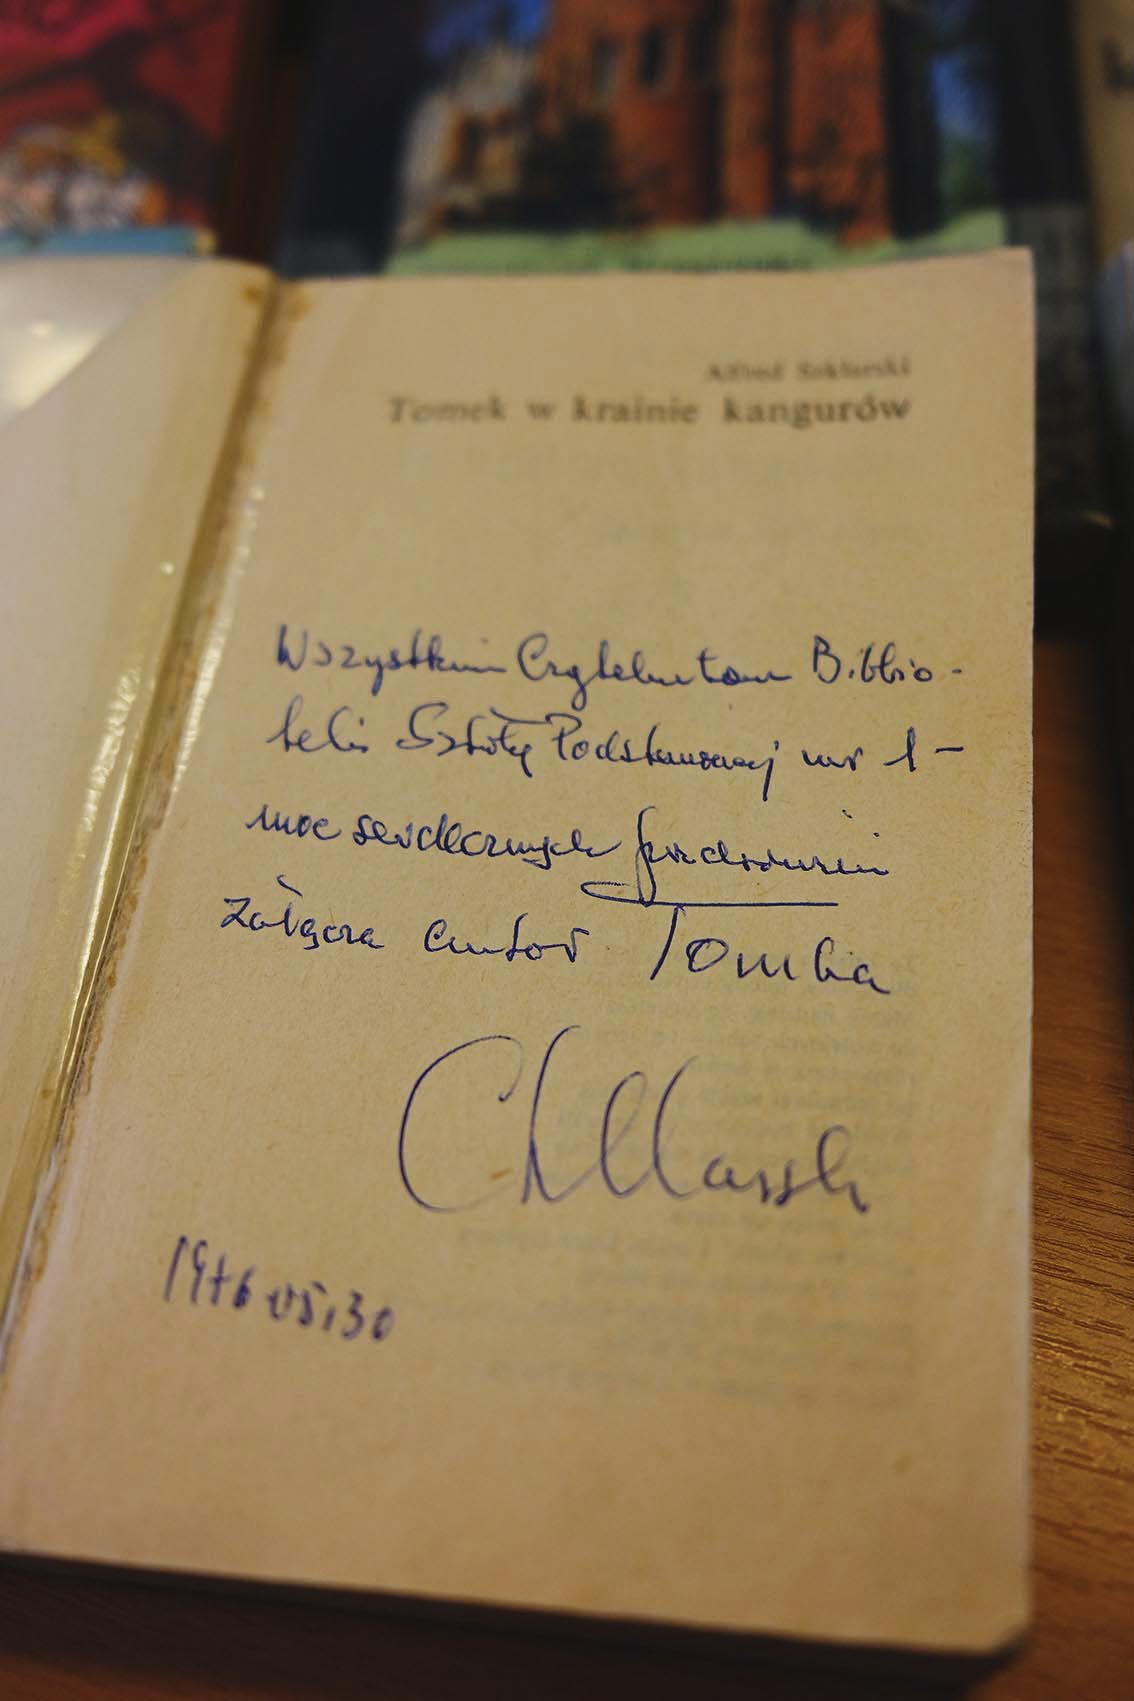 Alfred Szklarski
Tomek w krainie kangurów
Wszystkim Czytelnikom Biblio-
teki Szkoły Podstawowej nr 1 -
moc serdecznych pozdrowień
załącza autor Tomka
1976 05.30